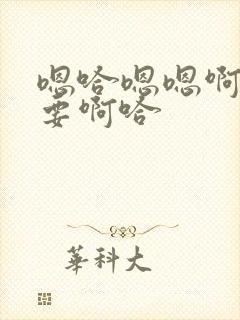 嗯哈嗯嗯啊
要啊哈
華科大